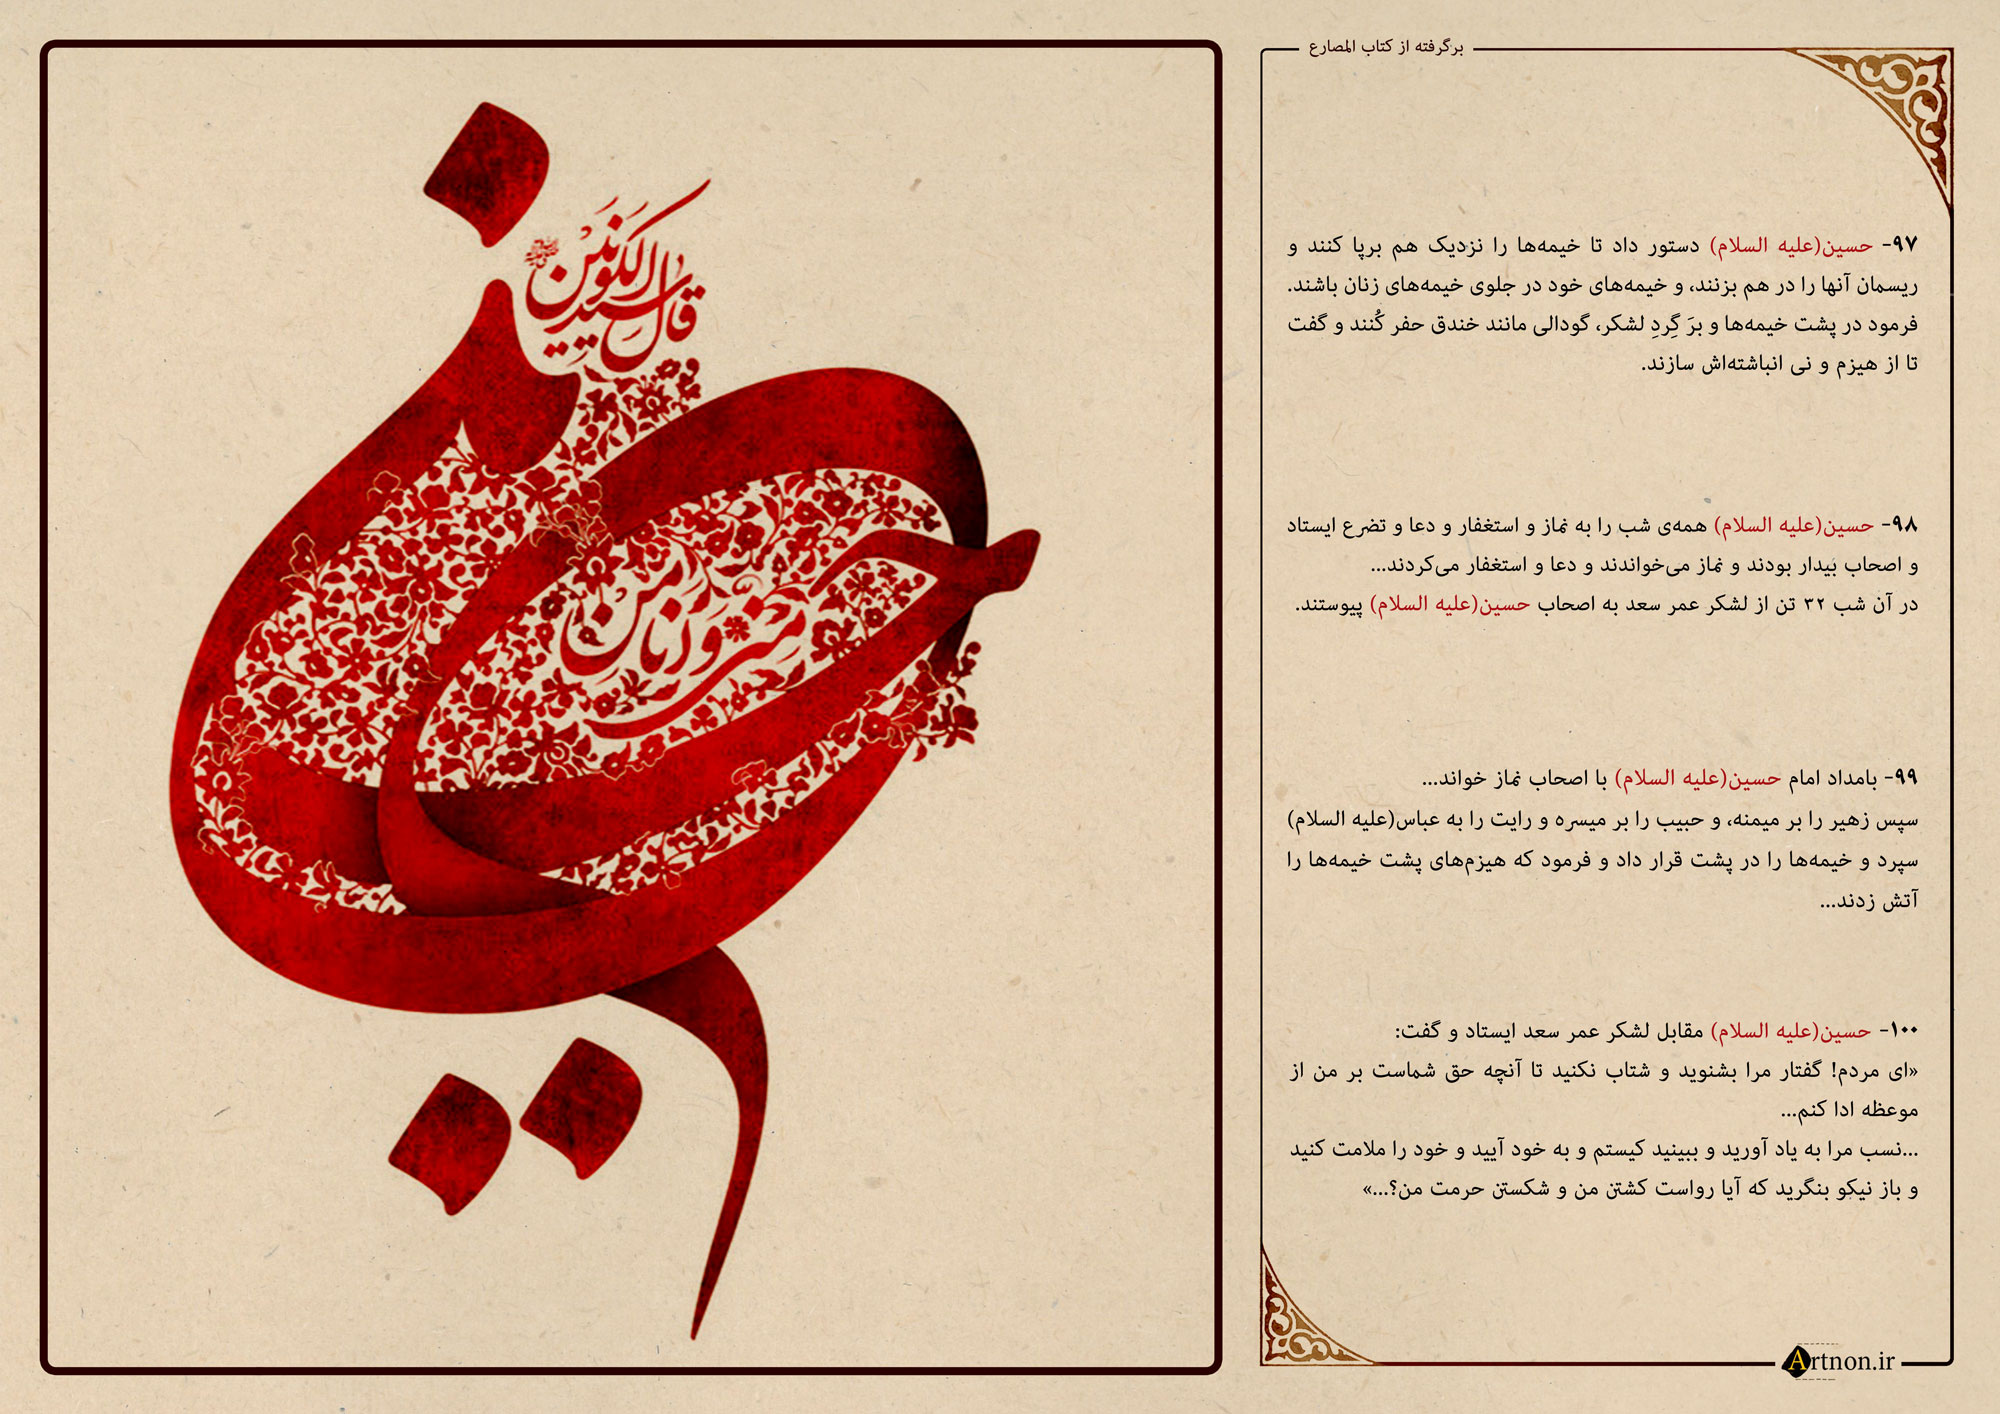 برگرفته از کتاب المصارع
۹۷- حسین(علیه السلام) دستور داد تا خیمه‌ها را نزدیک هم برپا کنند و
ریسمان آنها را در هم بزنند، و خیمه‌های خود در جلوی خیمه‌های زنان باشند.
فرمود در پشت خیمه‌ها و برَ گِردِ لشکر، گودالی مانند خندق حفر کُنند و گفت
تا از هیزم و نی انباشته‌اش سازند.
۹۸- حسین(علیه السلام) همه‌ی شب را به نماز و استغفار و دعا و تضرع ایستاد
و اصحاب بیدار بودند و نماز می‌خواندند و دعا و استغفار می‌کردند...
در آن شب ۳۲ تن از لشکر عمر سعد به اصحاب حسین(علیه السلام) پیوستند.
۹۹- بامداد امام حسین(علیه السلام) با اصحاب نماز خواند...
سپس زهیر را بر میمنه، و حبیب را بر میسره و رایت را به عباس(علیه السلام)
سپرد و خیمه‌ها را در پشت قرار داد و فرمود که هیزم‌های پشت خیمه‌ها را
آتش زدند...
۱۰۰- حسین(علیه السلام) مقابل لشکر عمر سعد ایستاد و گفت:
«ای مردم! گفتار مرا بشنوید و شتاب نکنید تا آنچه حق شماست بر من از
موعظه ادا کنم...
...نسب مرا به یاد آورید و ببینید کیستم و به خود آیید و خود را ملامت کنید
و باز نیکو بنگرید که آیا رواست کشتن من و شکستن حرمت من؟...»
Artnon.ir
قال سید الکونین
حسین منی و انا من
حسین